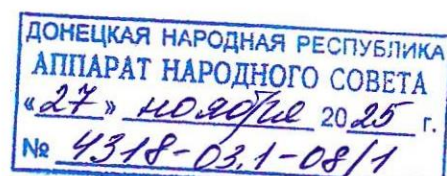 ДОНЕЦКАЯ НАРОДНАЯ РЕСПУБЛИКА
АППАРАТ НАРОДНОГО СОВЕТА
«27» ноября 2025 г.
№ 4318-03.1-08/1